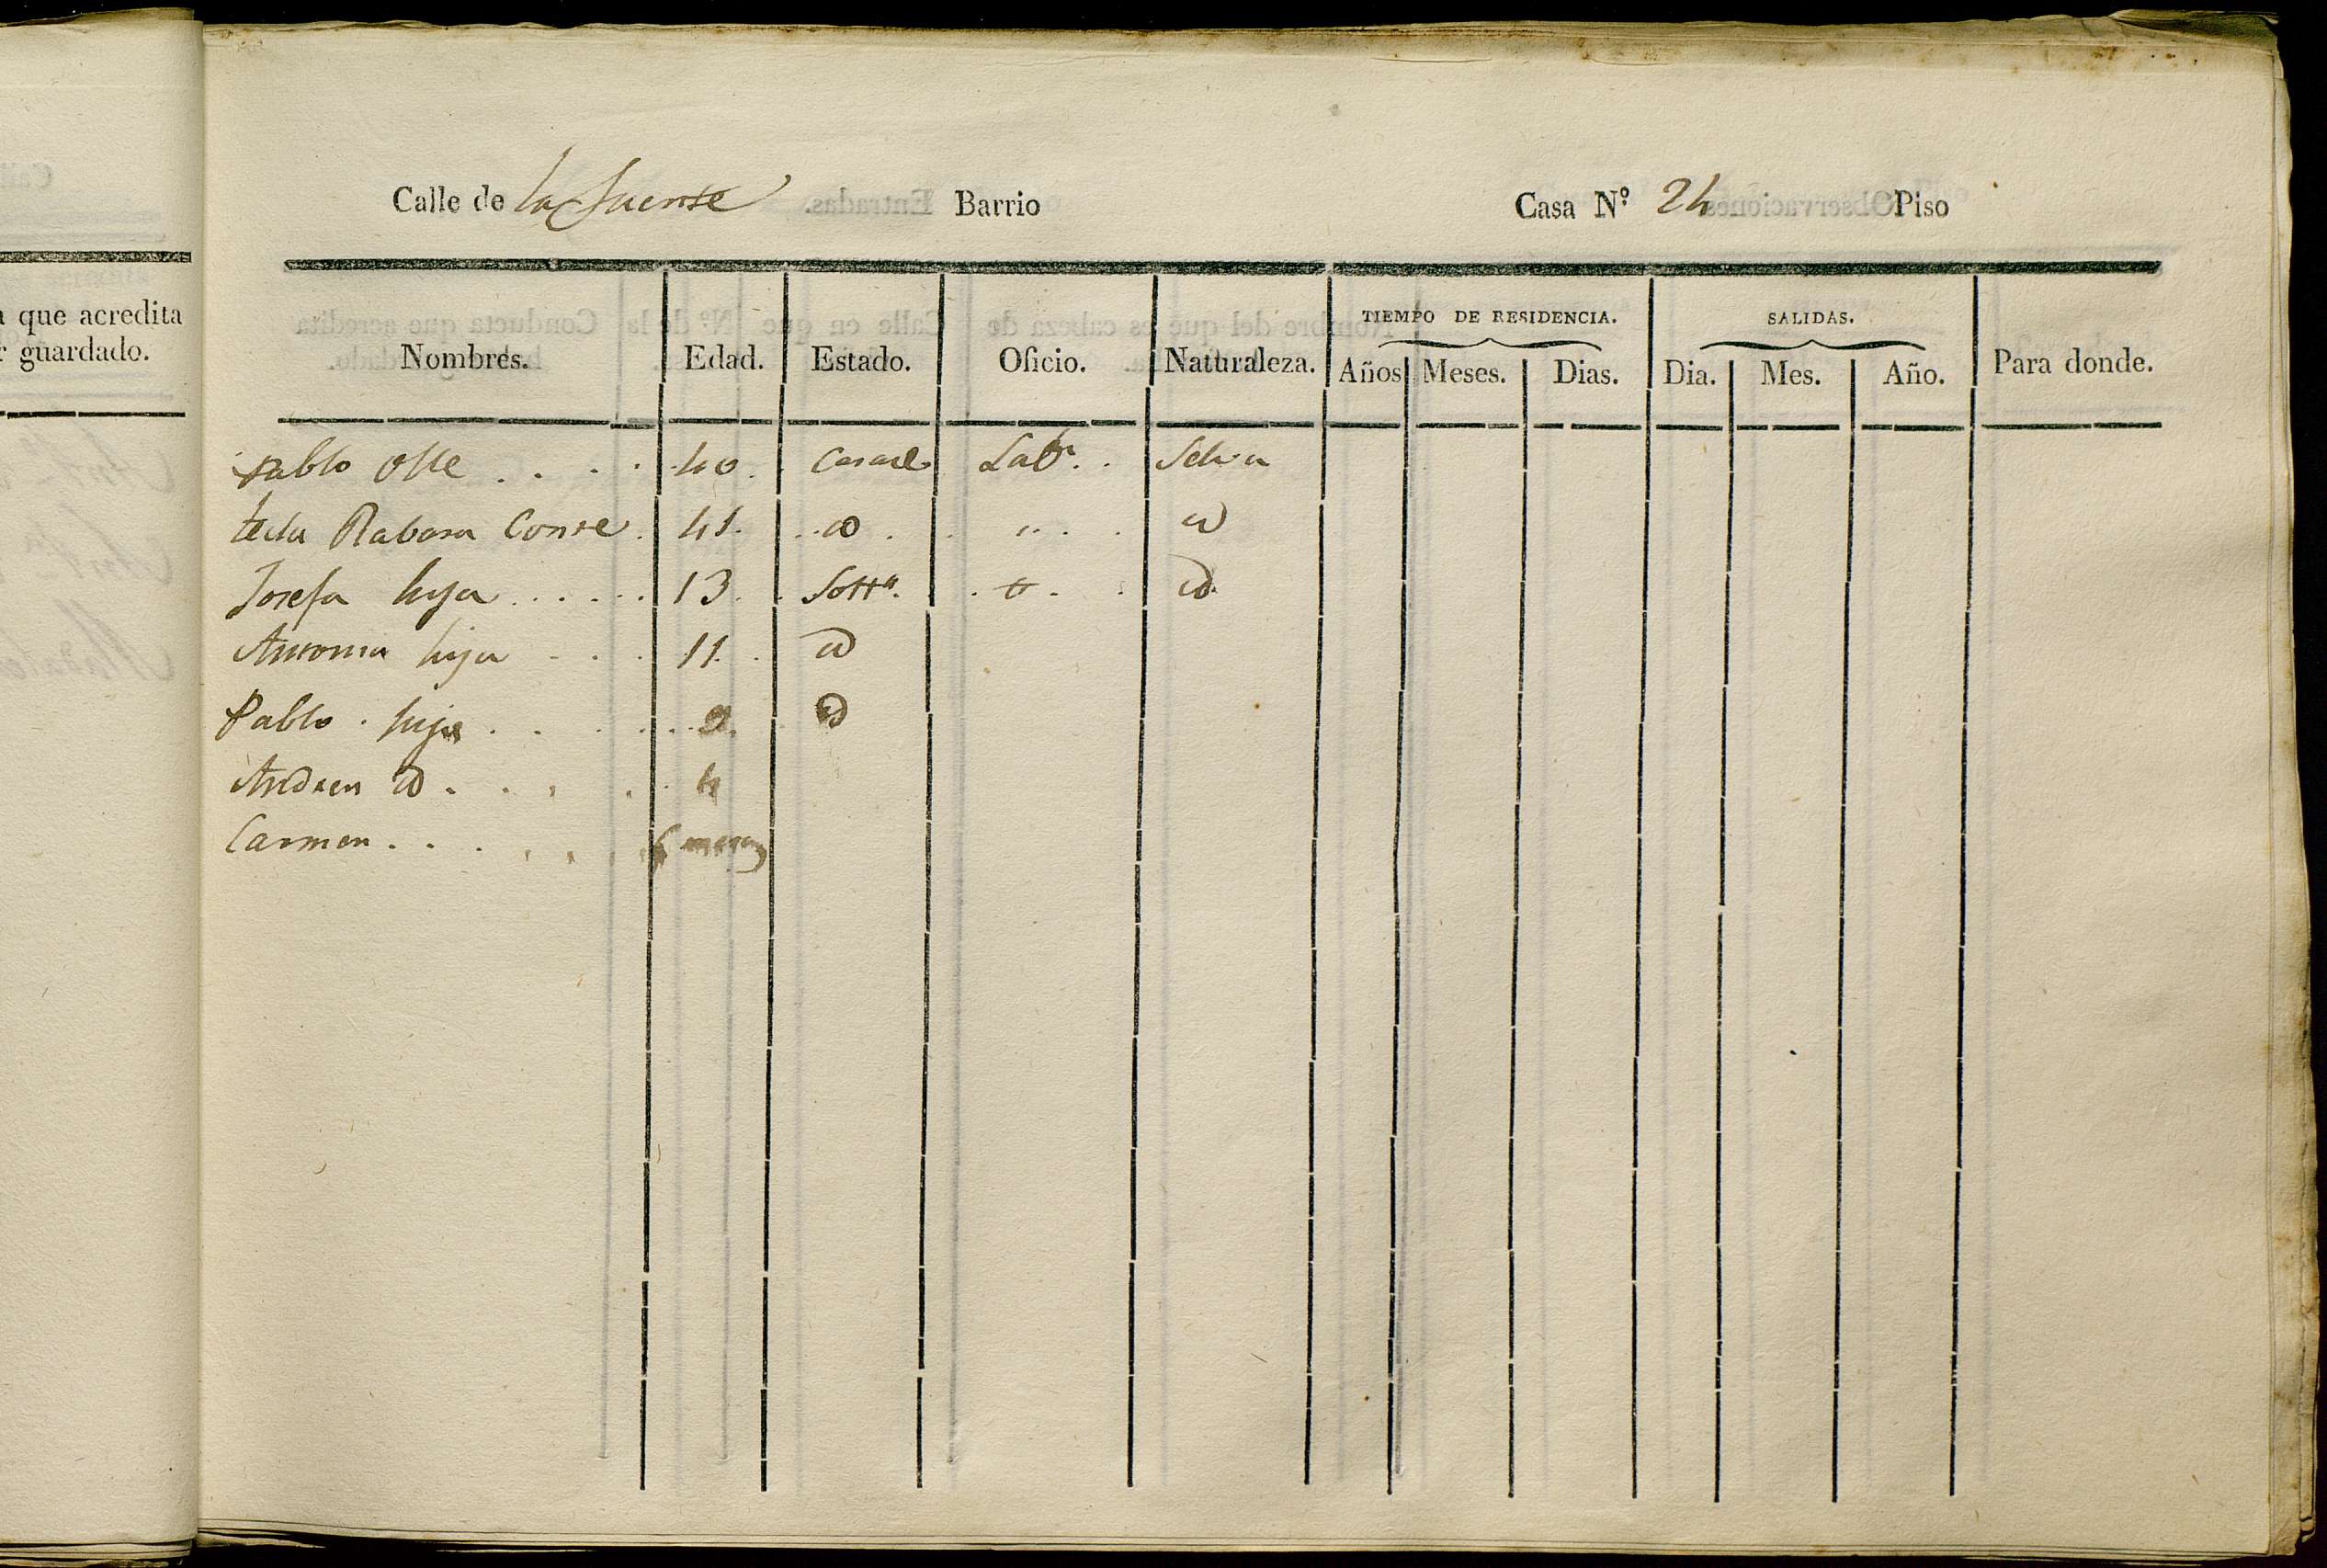 a que acredita
r guardado.
Calle de la fuente Barrio Casa N.º 24 Piso
Nombres. Edad. Estado. Oficio. Naturaleza. TIEMPO DE RESIDENCIA. Años Meses. Dias. SALIDAS. Dia. Mes. Año. Para donde.
Pablo Olle . . . 40 . Casado Labr . . Selva
tecla Rabasa Conte . 41 . . . id . . " . . . id
Josefa hija . . . . . 13 . . Soltª . . . id
Antonia hija . . . 11 . . id
Pablo . hijo . . . . . . 9 . id
Andreu id . . . . . 4
Carmen . . . . . . 6 meses